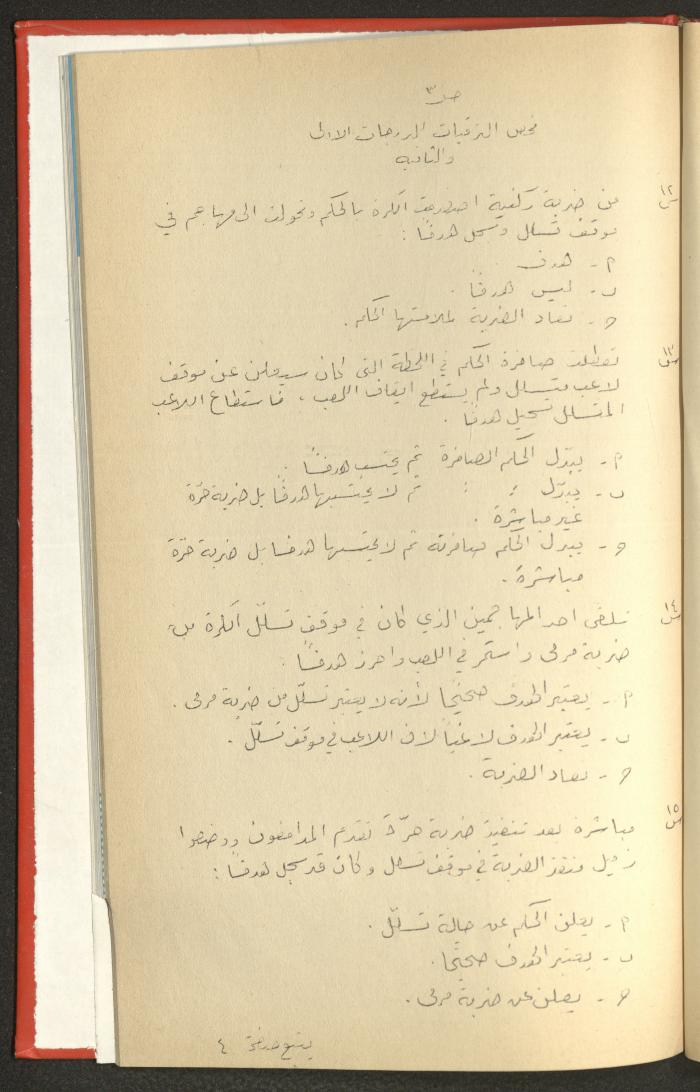 ص ٣
فحص الترقيات الدرجات الاولى
والثانيه
س١٢ من ضربة ركنية اصطدمت الكرة بالحكم وتحولت الى مهاجم في
موقف تسلل وسجل هدفًا :
أ - هدف .
ب - ليس هدفًا .
ج - تعاد الضربة لملامستها الحكم .
س١٣ تعطلت صافرة الحكم في اللحظة التي كان سيعلن عن موقف
لاعب متسلل ولم يستطع ايقاف اللعب ، فاستطاع اللاعب
المتسلل تسجيل هدفًا .
أ - يبدّل الحكم الصافرة ثم يحتسب هدفًا :
ب - يبدّل : : ثم لا يحتسبها هدفًا بل ضربة حرّة
غير مباشرة .
ج - يبدل الحكم صافرته ثم لا يحتسبها هدفا بل ضربة حرّة
مباشرة .
س١٤ تلقى احد المهاجمين الذي كان في موقف تسلّل الكرة من
ضربة مرمى واستمر في اللعب واحرز هدفًا :
أ - يعتبر الهدف صحيحًا لأنه لا يعتبر تسلّل من ضربة مرمى .
ب - يعتبر الهدف لاغيًا لان اللاعب في موقف تسلّل .
ج - تعاد الضربة .
س١٥ مباشرة بعد تنفيذ ضربة حرّة تقدم المدافعون ووضعوا
زميل منفذ الضربة في موقف تسلل وكان قد سجل هدفًا :
أ - يعلن الحكم عن حالة تسلّل .
ب - يعتبر الهدف صحيحًا .
ج - يعلن عن ضربة مرمى .
يتبع صفحة ٤